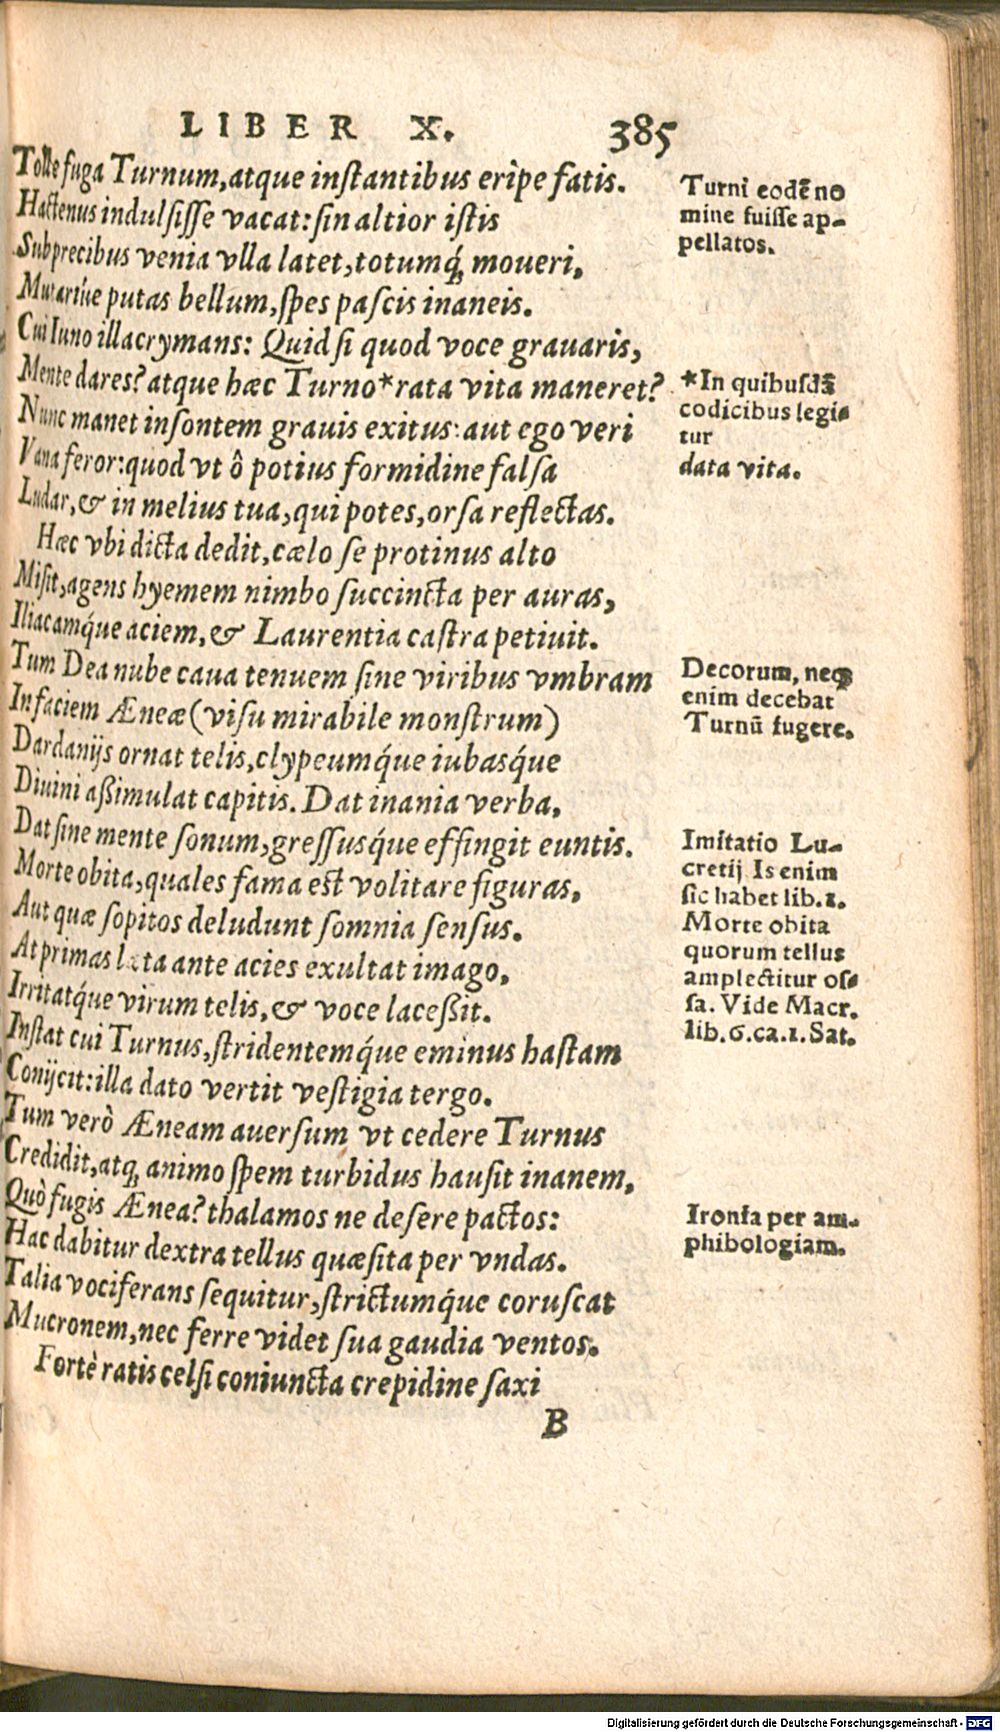 LIBER X. 385
Tolle fuga Turnum, atque instantibus eripe fatis.
Hactenus indulsisse vacat: sin altior istis
Sub precibus venia vlla latet, totumq́; moueri,
Mutariúe putas bellum, spes pascis inaneis.
Cui Iuno illacrymans: Quid si quod voce grauaris,
Mente dares? atque hæc Turno*rata vita maneret?
Nunc manet insontem grauis exitus: aut ego veri
Vana feror: quod vt ô potius formidine falsa
Ludar, & in melius tua, qui potes, orsa reflectas.
Hæc vbi dicta dedit, cælo se protinus alto
Misit, agens hyemem nimbo succincta per auras,
Iliacamq́ue aciem, & Laurentia castra petiuit.
Tum Dea nube caua tenuem sine viribus vmbram
In faciem Æneæ (visu mirabile monstrum)
Dardanijs ornat telis, clypeumq́ue iubasq́ue
Diuini aßimulat capitis. Dat inania verba,
Dat sine mente sonum, gressusq́ue effingit euntis.
Morte obita, quales fama est volitare figuras,
Aut quæ sopitos deludunt somnia sensus.
At primas læta ante acies exultat imago,
Irritatq́ue virum telis, & voce laceßit.
Instat cui Turnus, stridentemq́ue eminus hastam
Conijcit: illa dato vertit vestigia tergo.
Tum verò Æneam auersum vt cedere Turnus
Credidit, atq; animo spem turbidus hausit inanem,
Quò fugis Ænea? thalamos ne desere pactos:
Hac dabitur dextra tellus quæsita per vndas.
Talia vociferans sequitur, strictumq́ue coruscat
Mucronem, nec ferre videt sua gaudia ventos.
Fortè ratis celsi coniuncta crepidine saxi
B
Turni eodē no
mine fuisse ap-
pellatos.
*In quibusdā
codicibus legi-
tur
data vita.
Decorum, neq;
enim decebat
Turnū fugere.
Imitatio Lu-
cretij Is enim
sic habet lib.1.
Morte obita
quorum tellus
amplectitur os-
sa. Vide Macr.
lib.6.ca.1.Sat.
Ironia per am-
phibologiam.
Digitalisierung gefördert durch die Deutsche Forschungsgemeinschaft - DFG